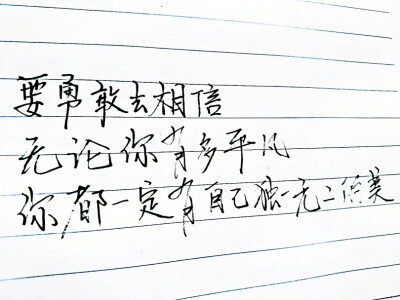 要勇敢去相信
无论你有多平凡
你都一定有自己独一无二的美